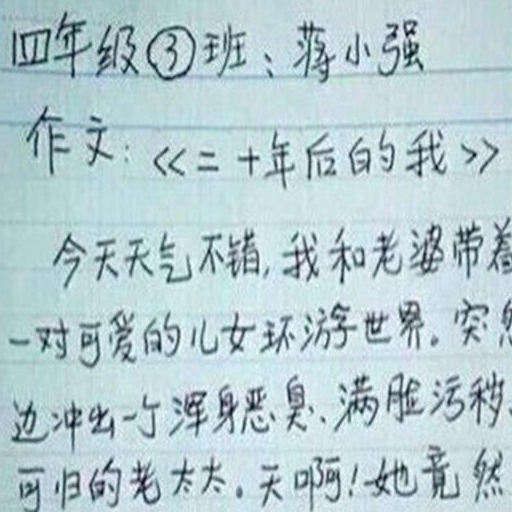 四年级③班：蒋小强
作文：《二十年后的我》
今天天气不错，我和老婆带着
一对可爱的儿女环游世界。突忽
边冲出一个浑身恶臭、满脸污秽、
可归的老太太。天啊！她竟然